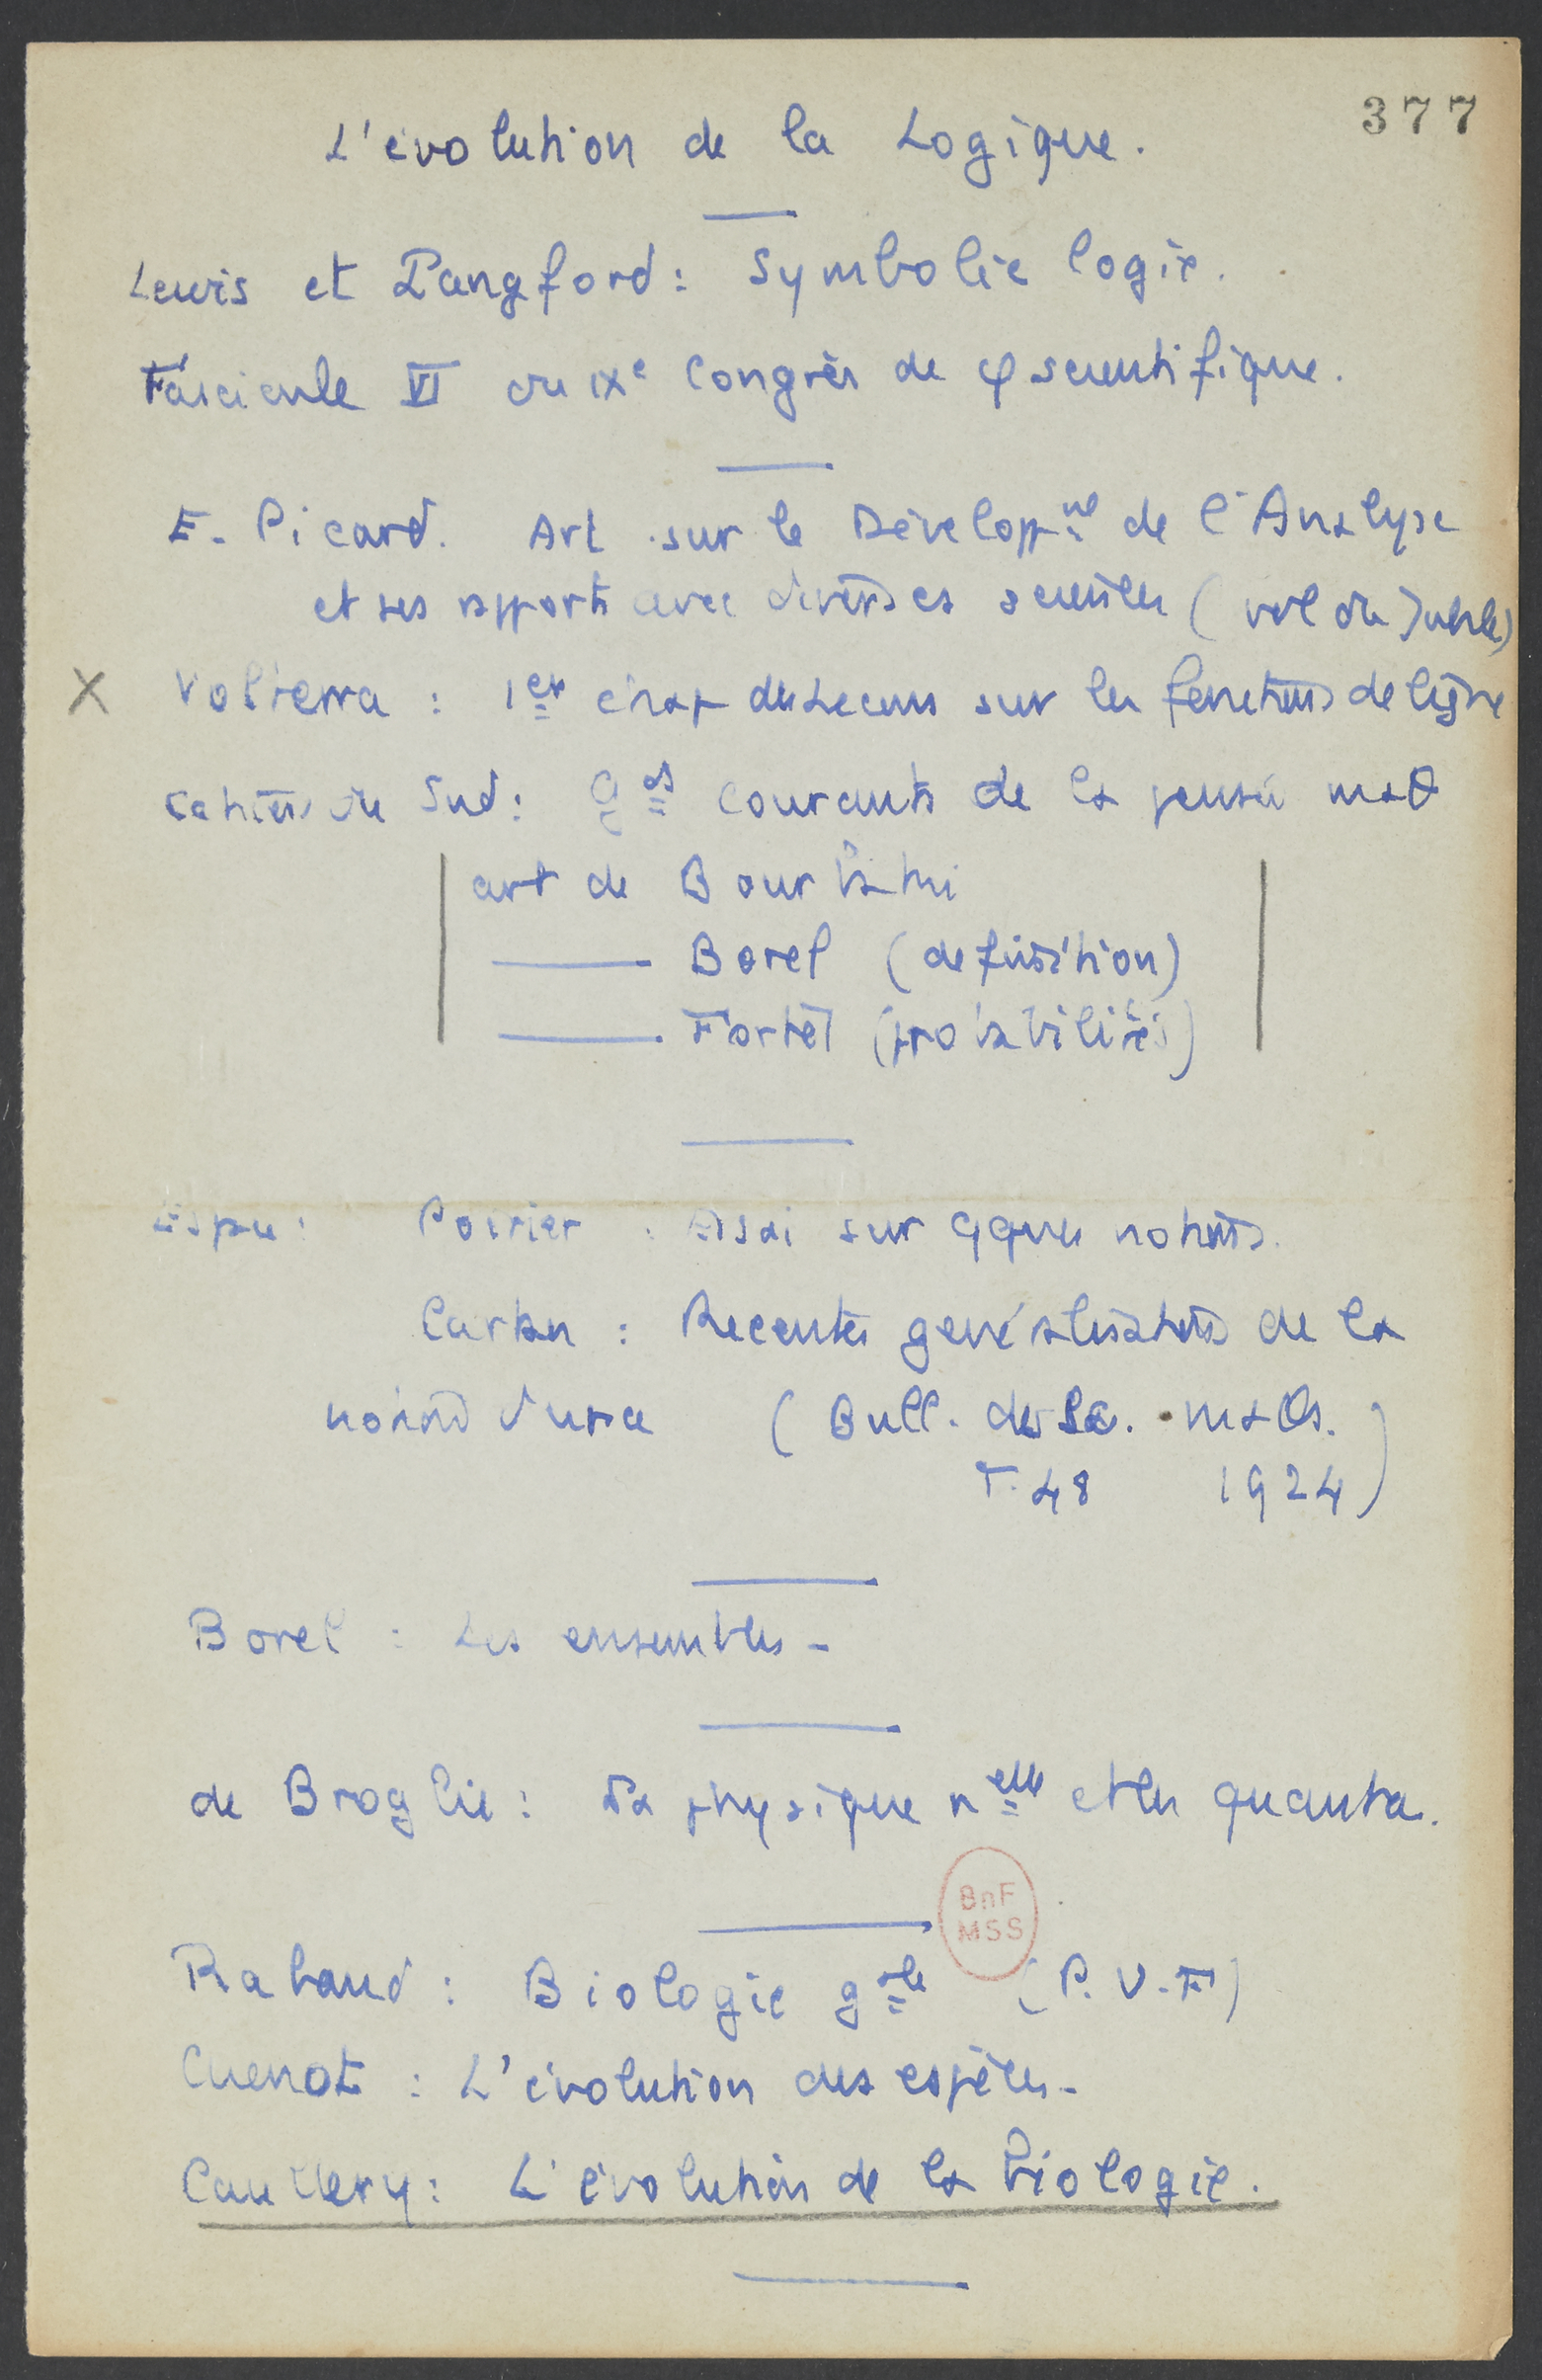 377
L'évolution de la Logique.
Lewis et Langford : Symbolic logic.
Fascicule VI du IXe Congrès de φ scientifique.
E. Picard. Art sur le Développnt de l'Analyse
et ses rapports avec diverses sciences (vol du Jubilé)
X Volterra : 1er chap des Leçons sur les fonctions de ligne
Cahiers du Sud : gds courants de la pensée maθ
art de Bourbaki
—— Borel (définition)
—— Fortet (probabilités)
Poirier : Essai sur qques notions.
Cartan : Récentes généralisations de la
notion d'espace (Bull. des Sc. maθs.
T. 48 1924)
Borel : Les ensembles -
de Broglie : La physique nelle et les quanta.
BnF
MSS
Rabaud : Biologie gale (P.U.F)
Cuenot : L'évolution des espèces -
Caullery : L'évolution de la biologie.